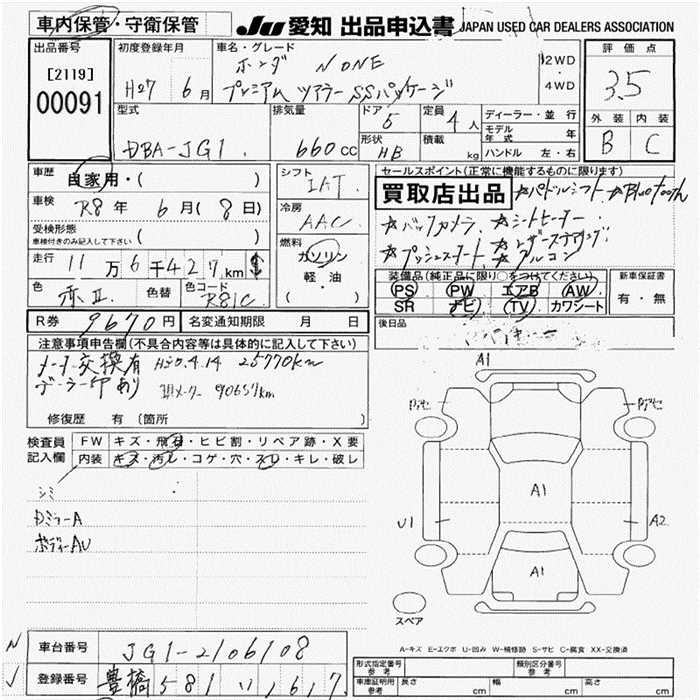 車内保管・守衛保管
JU 愛知 出品申込書 JAPAN USED CAR DEALERS ASSOCIATION
出品番号
[2119]
00091
初度登録年月
H27 6月
車名・グレード
ホンダ N ONE
プレミアム ツアラー SSパッケージ
2WD
・
4WD
評価点
3.5
外装 内装
B C
型式
DBA-JG1
排気量
660cc
ドア
5
定員
4人
形状
HB
積載
kg
ディーラー・並行
モデル年式 年
ハンドル 左・右
車歴
自家用・( )
車検
R8年 6月(8日)
受検形態
車検付きのみ記入して下さい( )
走行
11万6千427km $
色
赤II
色替
色コード
R81C
シフト
IAT
冷房
AAC
燃料
ガソリン
軽・油
・( )
セールスポイント(正常に機能するものに限ります)
買取店出品 ☆パドルシフト ☆Bluetooth
☆バックカメラ ☆シートヒーター
☆プッシュスタート ☆レザーステアリング
☆アルミ
装備品(純正品に限り○をつけてください)
PS PW エアB AW
SR ナビ TV カワシート
新車保証書
有・無
後日品
R券 9670円
名変通知期限 月 日
注意事項申告欄(不具合内容等は具体的に記入して下さい)
メーター交換有 H30.4.14 25770km
ディーラー印あり 現メーター 90657km
修復歴 有(箇所 )
検査員
記入欄
FW キズ・飛石・ヒビ割・リペア跡・X要
内装 キズ・汚レ・コゲ・穴・スレ・キレ・破レ
シミ
DミラーA
ボディーAU
A1
A1
U1
A2
A1
スペア
A-キズ E-エクボ U-凹み W-補修跡 S-サビ C-腐食 XX-交換済
車台番号
JG1-2106108
登録番号
豊橋 581 い 1617
形式指定番号
参考
類別区分番号
参考
車庫証明用
参考
長さ cm
幅 cm
高さ cm